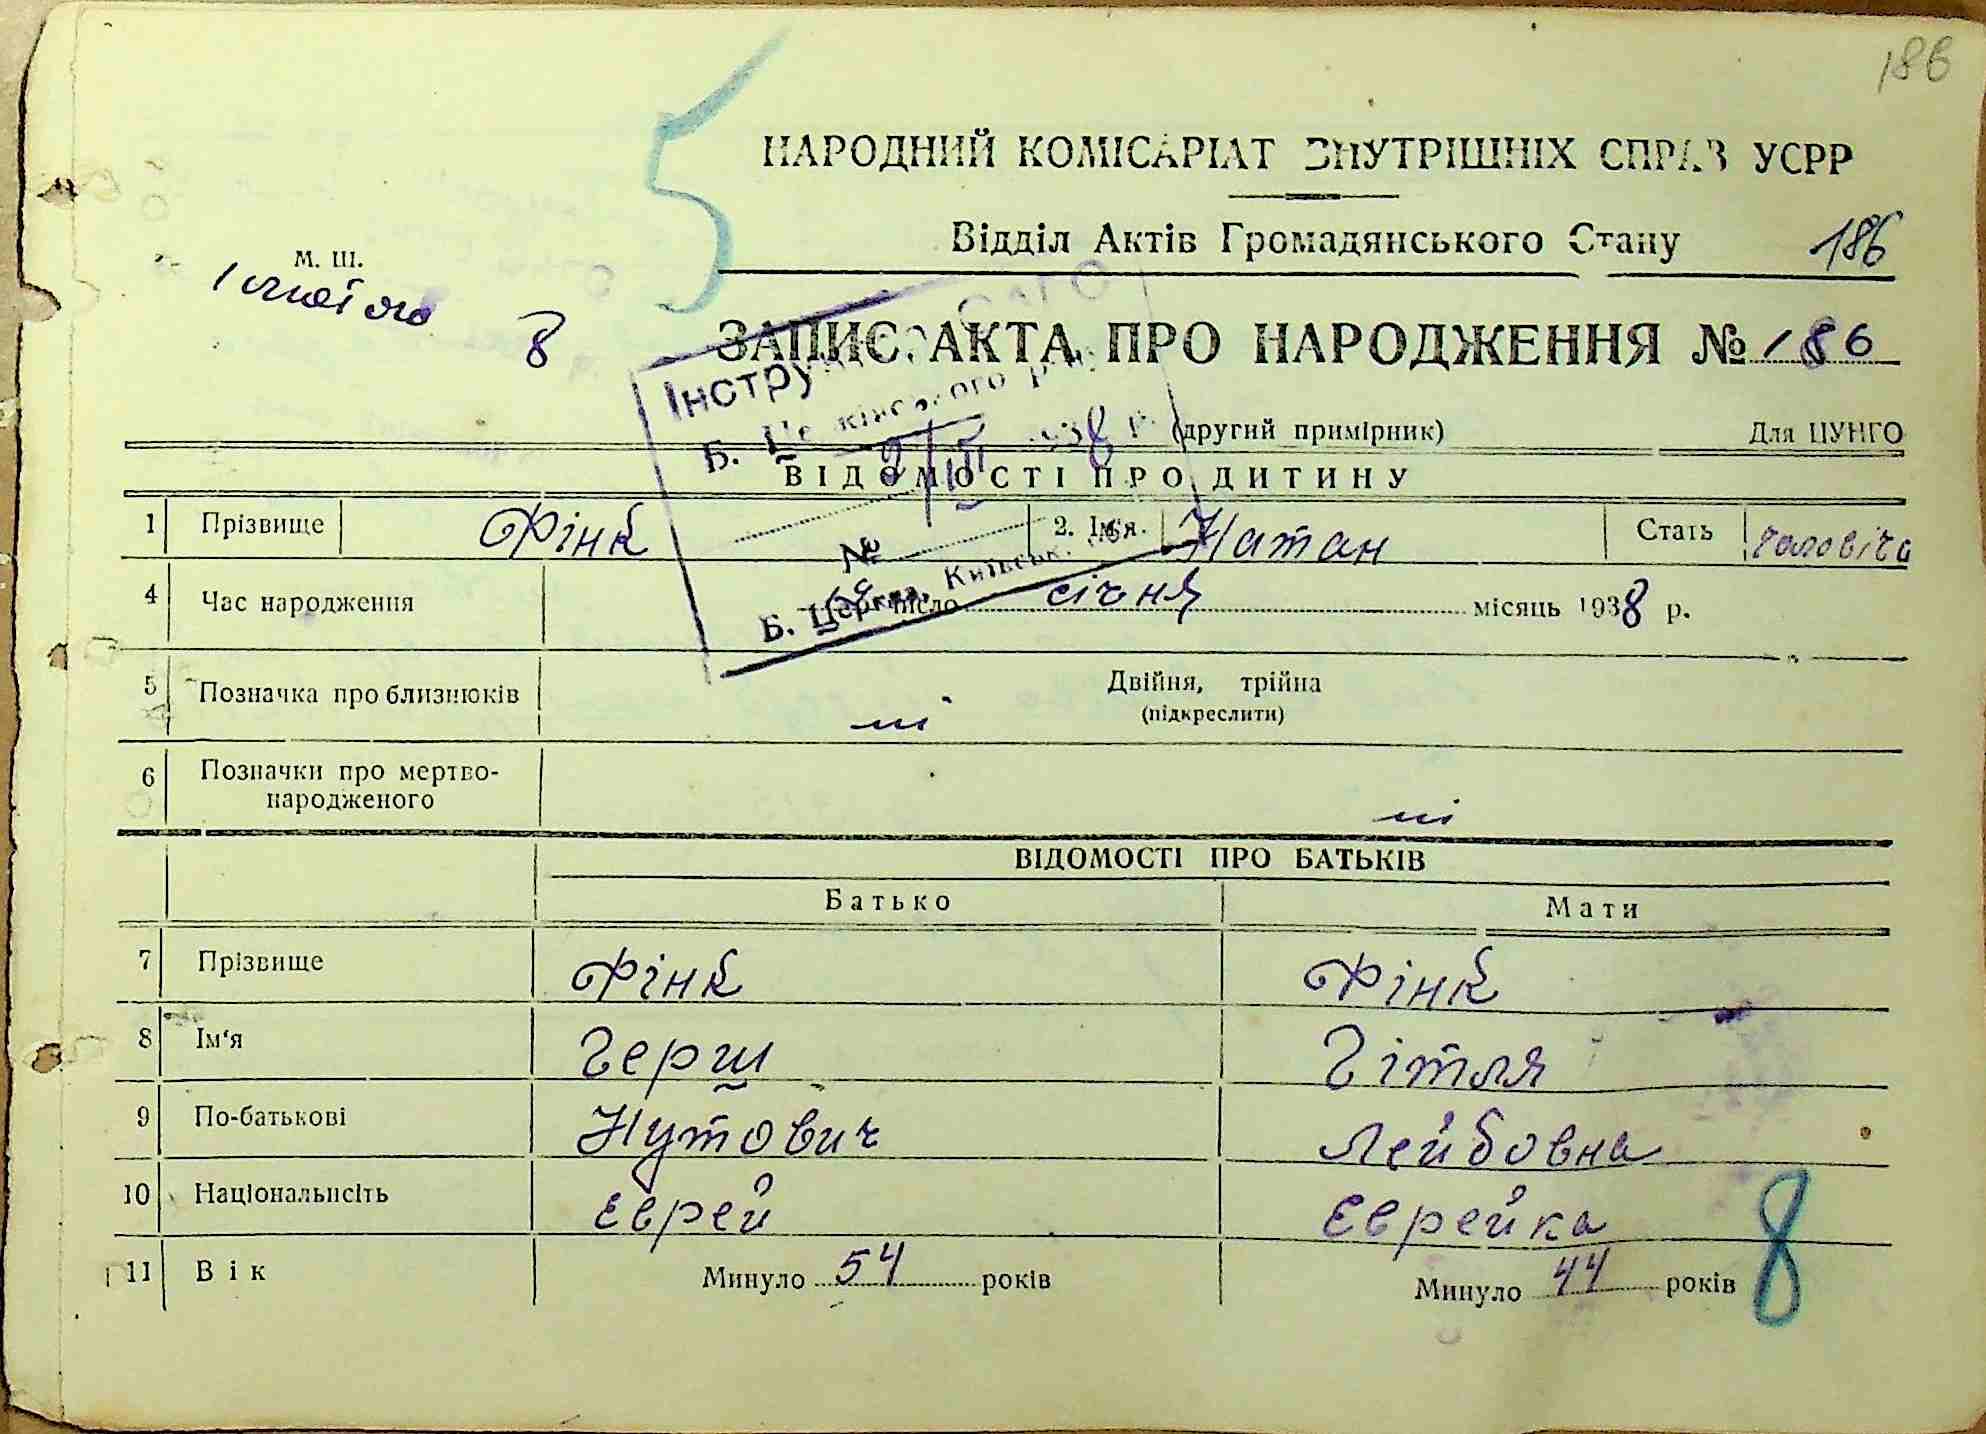 186
НАРОДНИЙ КОМІСАРІАТ ВНУТРІШНІХ СПРАВ УСРР
Відділ Актів Громадянського Стану 186
М. Ш.
1 лютого 8
5
ЗАПИС АКТА ПРО НАРОДЖЕННЯ № 186
(другий примірник) Для ЦУНГО
Інстру
Б. Церківського
2/III 1938 р.
№
Б. Церква, Київськ.
ВІДОМОСТІ ПРО ДИТИНУ
1 Прізвище Фінк 2. Ім'я Натан Стать чоловіча
4 Час народження число січня місяць 1938 р.
5 Позначка про близнюків ні Двійня, трійна
(підкреслити)
6 Позначки про мертво-
народженого ні
ВІДОМОСТІ ПРО БАТЬКІВ
Батько Мати
7 Прізвище Фінк Фінк
8 Ім'я Герш Гітля
9 По-батькові Нутович Лейбовна
10 Національність Єврей Єврейка
11 Вік Минуло 54 років Минуло 44 років
8